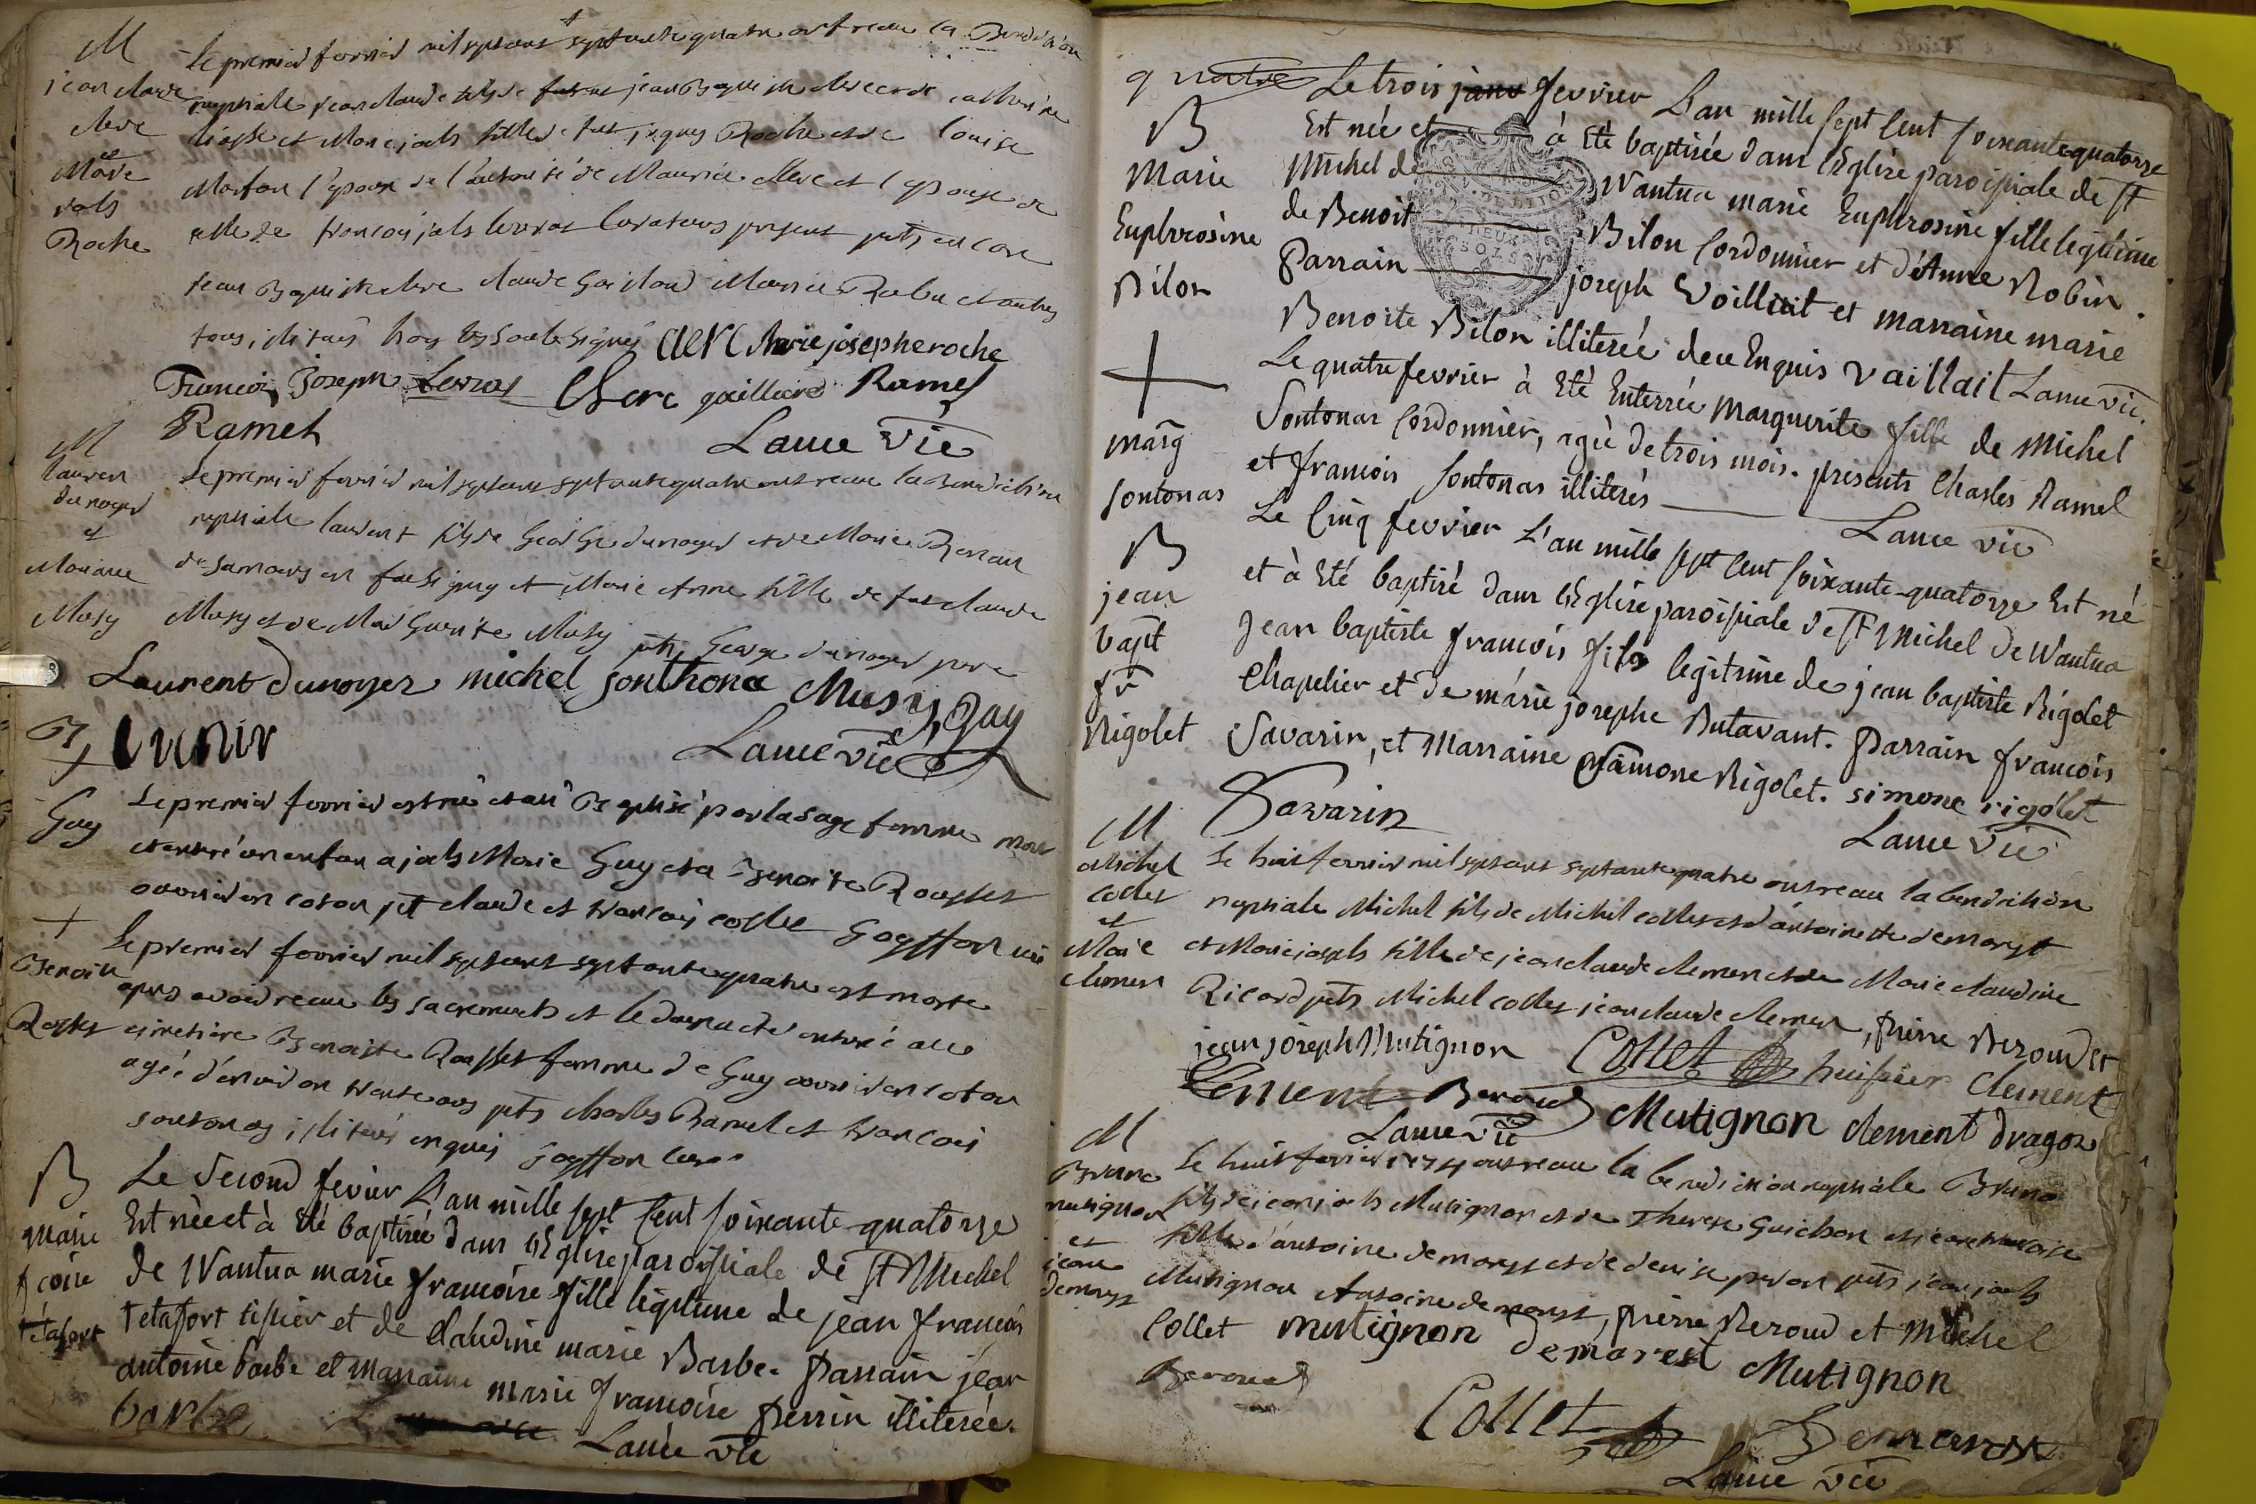 M
jean claude
clerc
et
Marie
Roche
Le premier fevrier mil septcent septante quatre ont receu la Benediction
nuptiale jean claude fils de jean Baptiste clerc et de catherine
et Marie josph fille de fut jaques Roche et de louise
l'epoux de l'autorité de Maurice clerc et l'epouse de
celle de francois josph levrat curateurs presents pnts encore
jean Baptiste clerc claude Gaillard Maurice et autres
tous illiteres hors les soubsignés clerc Marie josephe roche
Francois Joseph Levrat Clerc gaillard Ramel
Ramel
Lance vic
M
lauren
dunoyer
et
Mariane
Musy
Le premier fevrier mil septcent septante quatre ont receu la Benediction
nuptiale laurent fils de George dunoyer et de Marie
de Samoens en fausigny et Marie Anne fille de fut claude
Musy et de Marguerite Musy pnts George dunoyer pere
Laurent dunoyer michel sonthona Musy, Guy
B
+
Lance vic
Guy
Le premier fevrier est né et a eté Baptisé par la sage femme mort
et enterré un enfan a josph Marie Guy et a Benoite Rousset
ouvrier en coton pnt claude et francois collet Goyffon curé
+
Benoite
Rousset
Le premier fevrier mil septcent septante quatre est morte
apres avoir receu les sacrements et le enterré au
cimetiere Benoiste Rousset femme de Guy ouvrier en coton
agée d'environ trente ans pnts charles Ramel et francois
sontonas illiterés enquis Goyffon curé
B
marie
fcoise
tetafort
Le Second fevier L'an mille sept Cent soixante-quatorze
Est née et à Eté baptisée dans l'Eglise paroissiale de St Michel
de Nantua marie francoise fille legitime de jean francois
tetafort tissier et de Claudine marie Barbe. Parrain jean
antoine barbe et marraine marie francoise perrin illiterée.
barbe Lance vic
quatre
B
Marie
Euphrosine
Bilon
Le trois janv fevrier L'an mille sept Cent soixante quatorze
Est née et à Eté baptisée dans l'Eglise paroissiale de St
Michel de Nantua marie Euphrosine fille legitime
de Benoit Bilon Cordonnier et d'Anne Robin.
Parrain joseph Voilliat et marraine marie
Benoite Bilon illiterée de ce Enquis vaillait Lance vic.
+
marg
sontonas
Le quatre fevrier à Eté Enterrée Marguerite fille de Michel
Sontonas Cordonnier, agée de trois mois. presents Charles Ramel
et francois Sontonas illiterés Lance vic
B
jean
bapt
fr
Rigolet
Le Cinq fevrier L'an mille sept Cent soixante-quatorze Est né
et à Eté baptisé dans l'Eglise paroissiale de St Michel de Nantua
Jean baptiste francois fils legitime de jean baptiste Rigolet
Chapelier et de marie josephe Butavant. Parrain francois
Savarin, et Marraine Simone Rigolet. simone rigolet
Savarin
Lance vic
M
Michel
Collet
et
Marie
Clement
Le huit fevrier mil septcent septante quatre ont receu la benediction
nuptiale Michel fils de Michel collet et d'antoinette demoryst
et Marie josph fille de jean claude clement et de Marie claudine
Ricard pnts Michel collet jean claude clement, pierre Beroud et
jean joseph Mutignon Collet huissier Clement
Clement Beroud Mutignon clement dragoz
Lance vic
M
Bruno
mutignon
et
jeane
demoryst
Le huit fevrier 1774 ont receu la benediction nuptiale Bruno
fils de jean josph Mutignon et de Therese Guichon et jeane francoise
fille d'antoine demoryst et de denise pnts jean josph
Mutignon Antoine demoryst, pierre Beroud et Michel
Collet mutignon Demarest Mutignon
Beroud
Collet Demarest
Lance vic